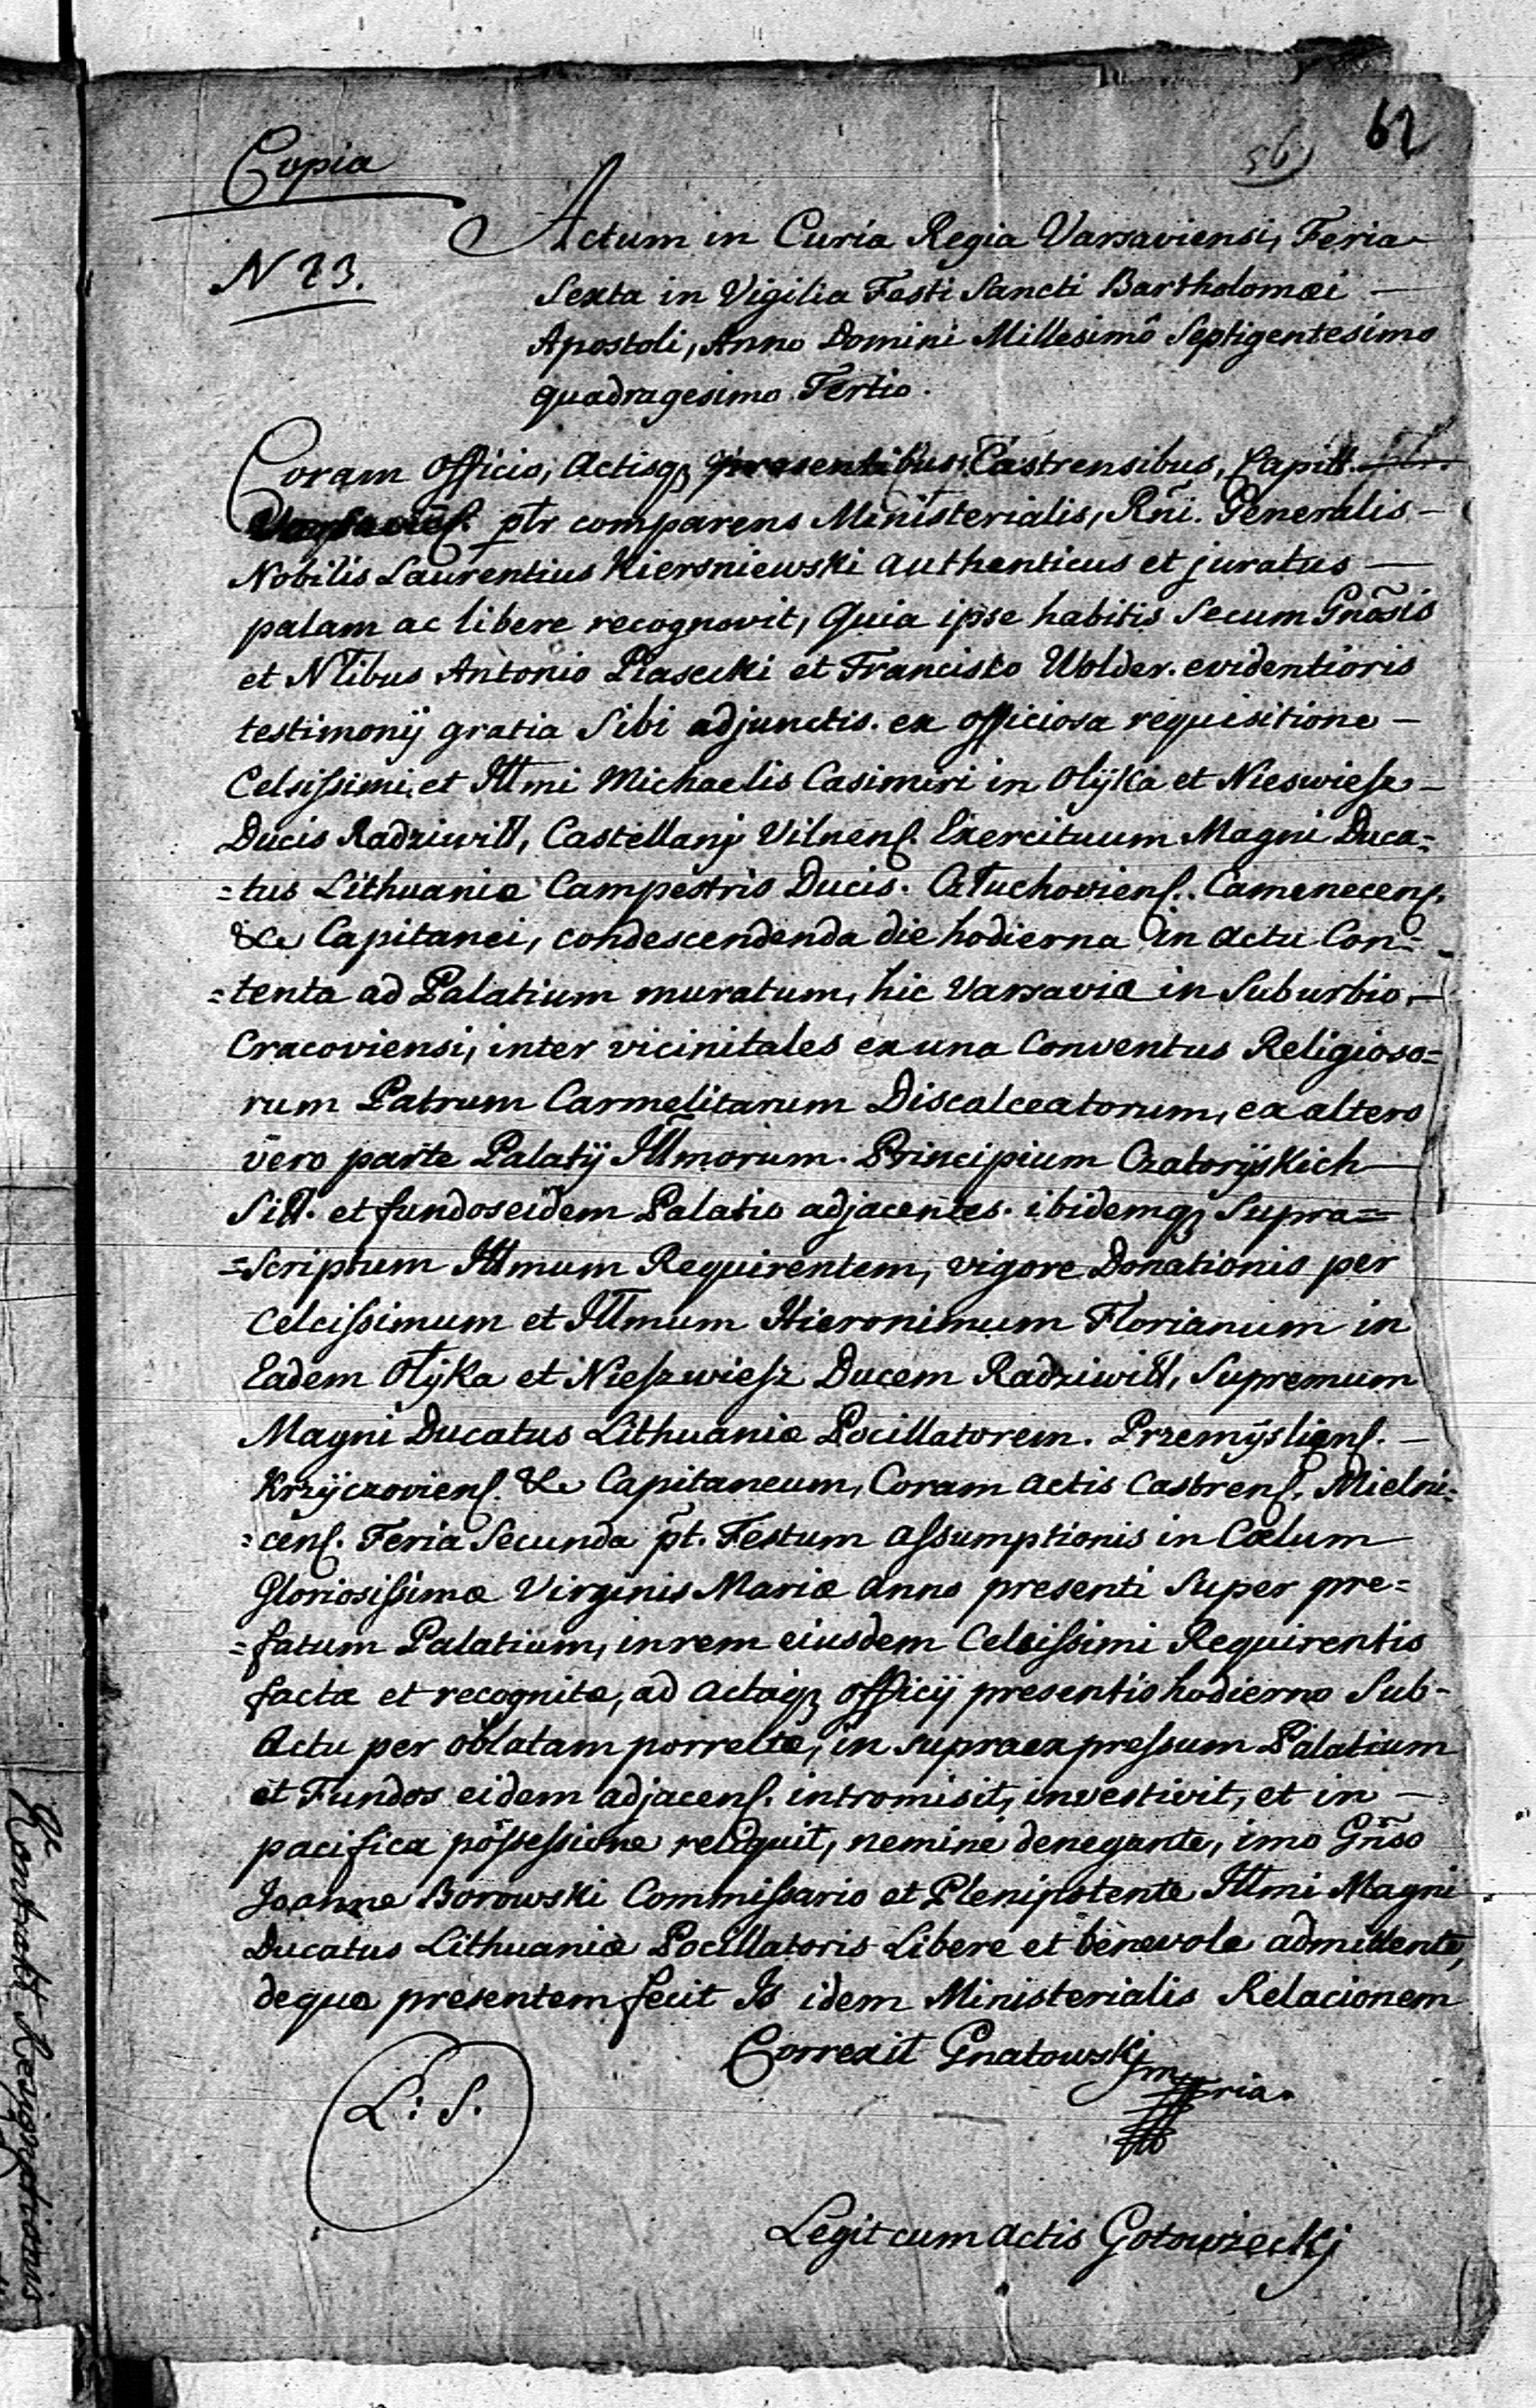 62
56
Copia
N 23.
Actum in Curia Regia Varsaviensi, Feria
Sexta in Vigilia Festi Sancti Bartholomæi —
Apostoli, Anno Domini Millesimô Septigentesimo
quadragesimo Tertio.
Coram Officio, Actisq presentibus, Castrensibus, Capitl.
ptr comparens Ministerialis, Rñi. Generalis —
Nobilis Laurentius Kiersniewski authenticus et juratus —
palam ac libere recognovit, Quia ipse habitis Secum Gñosis
et Nlibus Antonio Piasecki et Francisco Wolder. evidentioris
testimonij gratia Sibi adjunctis. ex officiosa requisitione —
Celsissimi, et Illmi Michaelis Casimiri in Olÿka et Nieswiesz —
Ducis Radziwill, Castellanj Vilnens. Exercituum Magni Duca=
=tus Lithuaniæ Campestris Ducis. Człuchoviens. Camenecens.
&c Capitanei, condescendenda die hodierna in actu Con=
=tenta ad Palatium muratum, hic Varsaviæ in Suburbio, —
Cracoviensi, inter vicinitales ex una Conventus Religioso=
rum Patrum Carmelitarum Discalceatorum, ex altero
vero parte Palatij Illmorum. Principium Czatorÿskich —
Sitt. et fundos eidem Palatio adjacentes. ibidemq Supra=
=Scriptum Illmum Requirentem, vigore Donationis per
Celcissimum et Illmum Hieronimum Florianum in
Eadem Ołÿka et Nieszwiesz Ducem Radziwill, Supremum
Magni Ducatus Lithuaniæ Pocillatorem. Przemÿsliens. —
Krzÿczoviens. &c Capitaneum, Coram actis Castrens. Mielni=
=cens. Feria Secunda pt. Festum Assumptionis in Cœlum
Gloriosissimæ Virginis Mariæ anno presenti Super pre=
=fatum Palatium, in rem eiusdem Celsissimi Requirentis
factæ et recognitæ, ad actaq officij presentis hodierno Sub-
Actu per oblatam porrectæ, in supraexpressum Palatium
et Fundos eidem adjacens. intromisit, investivit, et in —
pacifica possessione reliquit, nemine denegante, imo Gñso
Joanne Borowski Commissario et Plenipotente Illmi Magni
Ducatus Lithuaniæ Pocillatoris Libere et benevole admittente,
deque presentem fecit Is idem Ministerialis Relacionem
Correxit Gnatowskj
mppria.
L: S.
Legit cum actis Gotowieckj